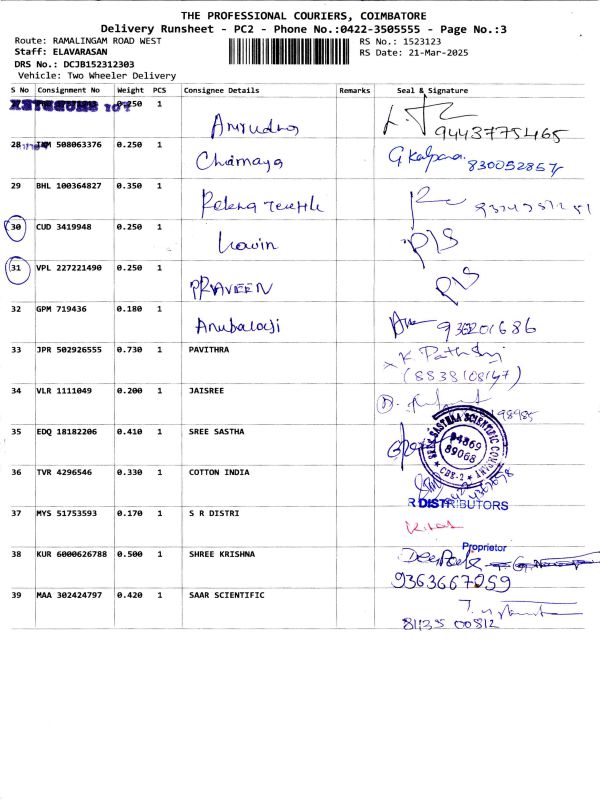 THE PROFESSIONAL COURIERS, COIMBATORE
Delivery Runsheet - PC2 - Phone No.:0422-3505555 - Page No.:3
Route: RAMALINGAM ROAD WEST
RS No.: 1523123
Staff: ELAVARASAN
RS Date: 21-Mar-2025
DRS No.: DCJB152312303
Vehicle: Two Wheeler Delivery
S No Consignment No Weight PCS Consignee Details Remarks Seal & Signature
0.250 1 Anirudha 9443775465
28 508063376 0.250 1 Chamaya G Kalpana 830052857
29 BHL 100364827 0.350 1
30 CUD 3419948 0.250 1 P/S
31 VPL 227221490 0.250 1 PRAVEEN P/S
32 GPM 719436 0.180 1 Anubalaji 936201686
33 JPR 502926555 0.730 1 PAVITHRA
(8838108147)
34 VLR 1111049 0.200 1 JAISREE 98985
35 EDQ 18182206 0.410 1 SREE SASTHA
SREE SASTHA SCIENTIFIC COMPANY
94869
89068
CBE-2
36 TVR 4296546 0.330 1 COTTON INDIA
R DISTRIBUTORS
37 MYS 51753593 0.170 1 S R DISTRI
Proprietor
38 KUR 6000626788 0.500 1 SHREE KRISHNA Deepak
9363667059
39 MAA 302424797 0.420 1 SAAR SCIENTIFIC
81135 00812